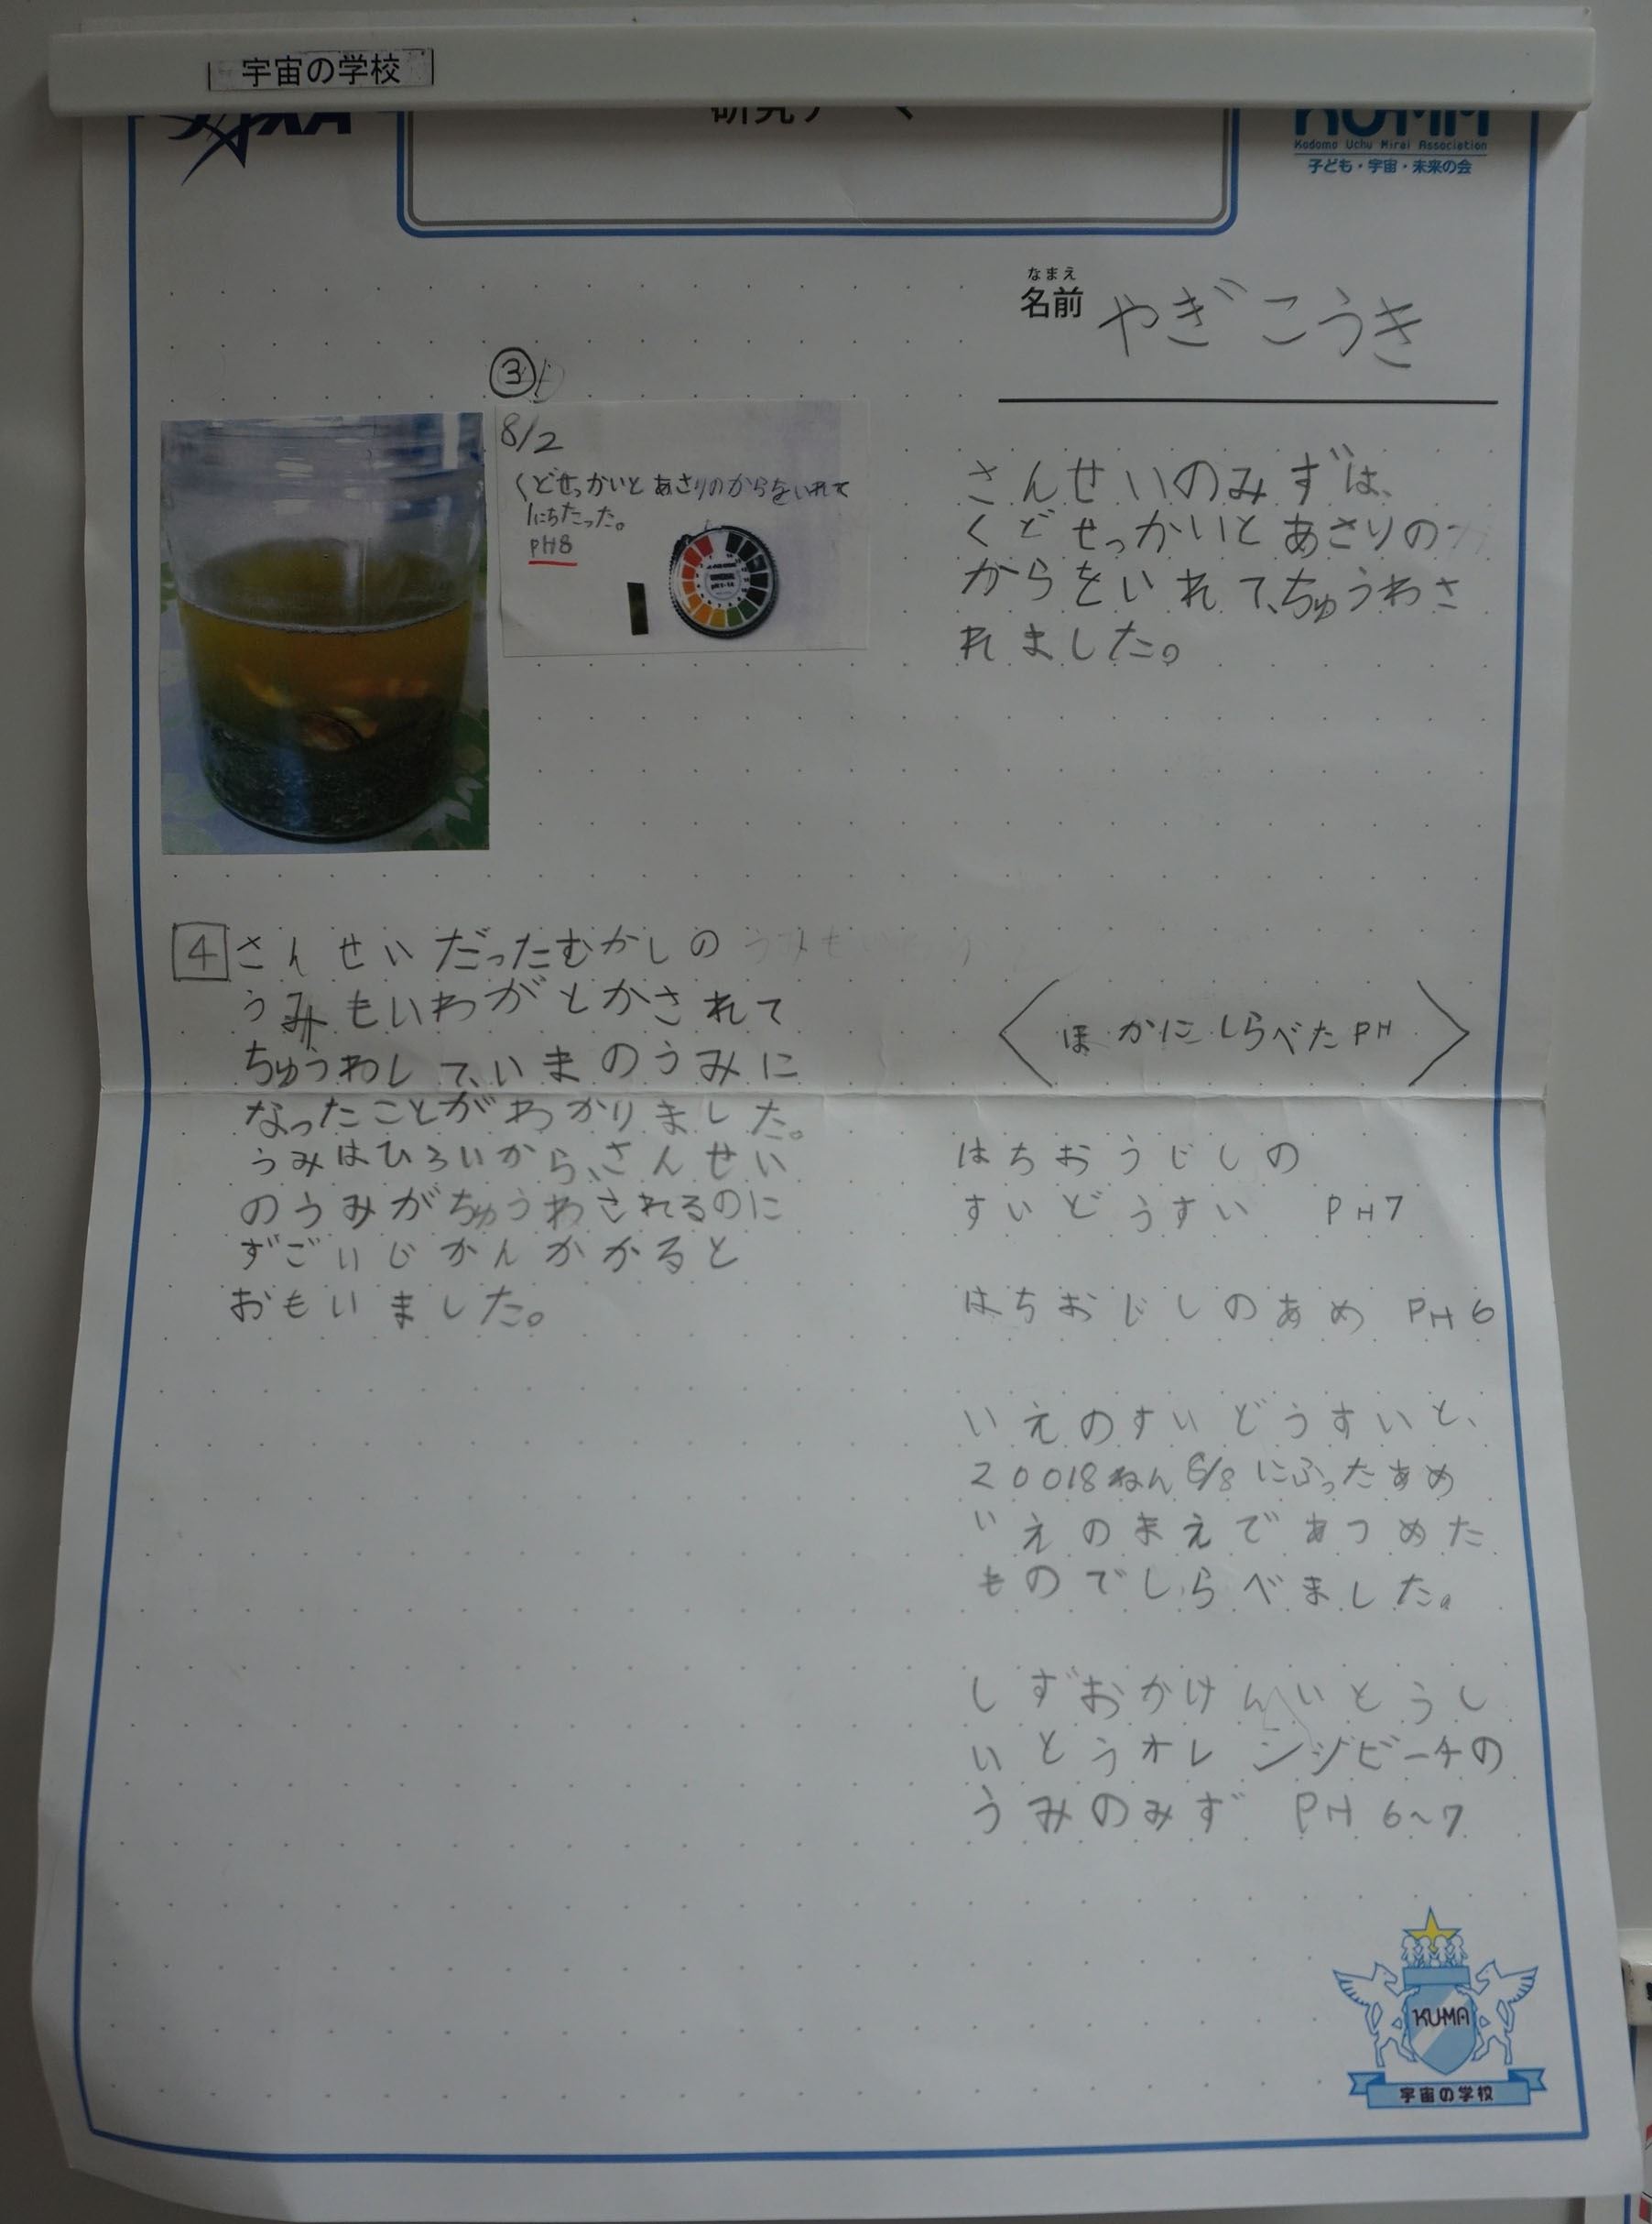 宇宙の学校
Kodomo Uchu Mirai Association
子ども・宇宙・未来の会
なまえ
名前 やぎ こうき
③
8/2
くどせっかいと あさりのからをいれて
1にちたった。
pH8
さんせいのみずは、
くどせっかいとあさりの
からをいれて、ちゅうわさ
れました。
4 さんせいだったむかしの
うみもいわがとかされて
ちゅうわして、いまのうみに
なったことがわかりました。
うみはひろいから、さんせい
のうみがちゅうわされるのに
ずごいじかんかかると
おもいました。
ほかにしらべたPH
はちおうじしの
すいどうすい PH7
はちおじしのあめ PH6
いえのすいどうすいと、
20018ねん8/8にふったあめ
いえのまえであつめた
ものでしらべました。
しずおかけんいとうし
いとうオレンジビーチの
うみのみず PH 6~7
KUMA
宇宙の学校